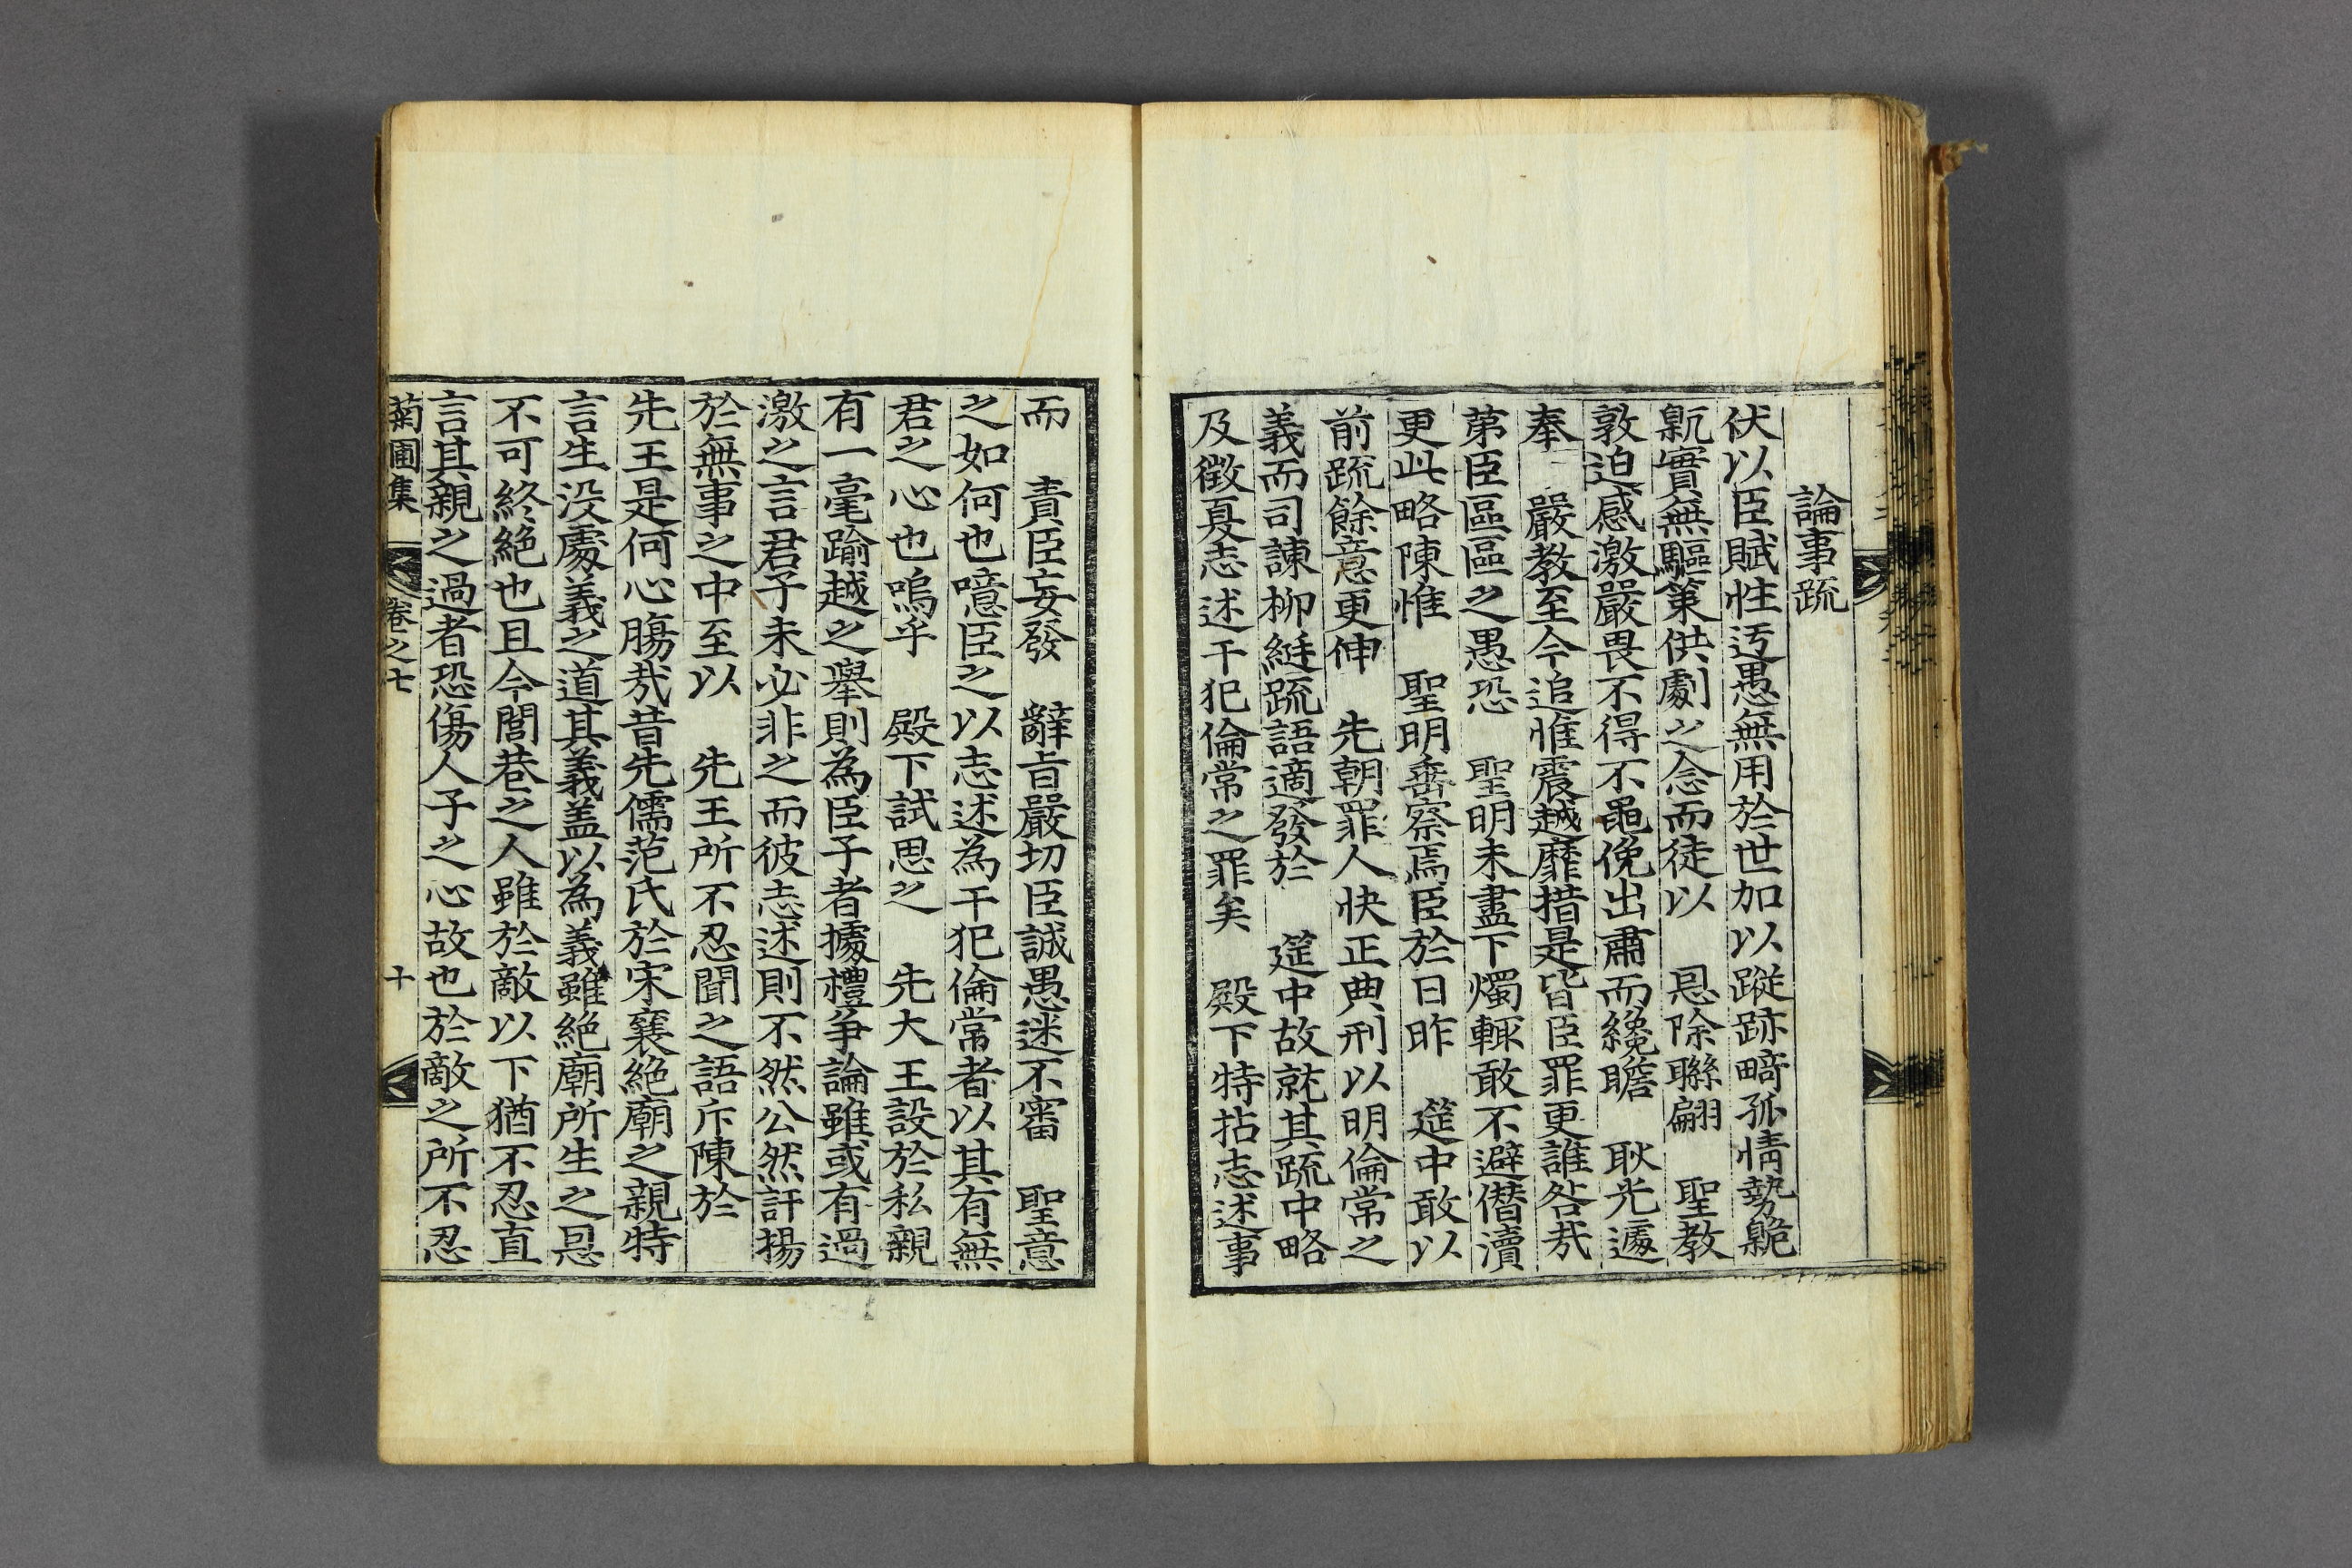 論事疏
伏以臣賦性迃愚無用於世加以蹤跡畸孤情勢臲
卼實無驅策供劇之念而徒以　恩除聯翩　聖教
敦迫感激嚴畏不得不黽俛出肅而纔瞻　耿光遽
奉　嚴教至今追惟震越靡措是皆臣罪更誰咎哉
第臣區區之愚恐　聖明未盡下燭輒敢不避僭瀆
更此略陳惟　聖明垂察焉臣於日昨　筵中敢以
前疏餘意更伸　先朝罪人快正典刑以明倫常之
義而司諫柳綎疏語適發於　筵中故就其疏中略
及徵夏志述干犯倫常之罪矣　殿下特拈志述事
而　責臣妄發　辭旨嚴切臣誠愚迷不審　聖意
之如何也噫臣之以志述為干犯倫常者以其有無
君之心也嗚乎　殿下試思之　先大王設於私親
有一毫踰越之擧則為臣子者據禮爭論雖或有過
激之言君子未必非之而彼志述則不然公然訐揚
於無事之中至以　先王所不忍聞之語斥陳於
先王是何心膓哉昔先儒范氏於宋襄絶廟之親特
言生没處義之道其義盖以為義雖絶廟所生之恩
不可終絶也且今閭巷之人雖於敵以下猶不忍直
言其親之過者恐傷人子之心故也於敵之所不忍
菊圃集　卷之七　十